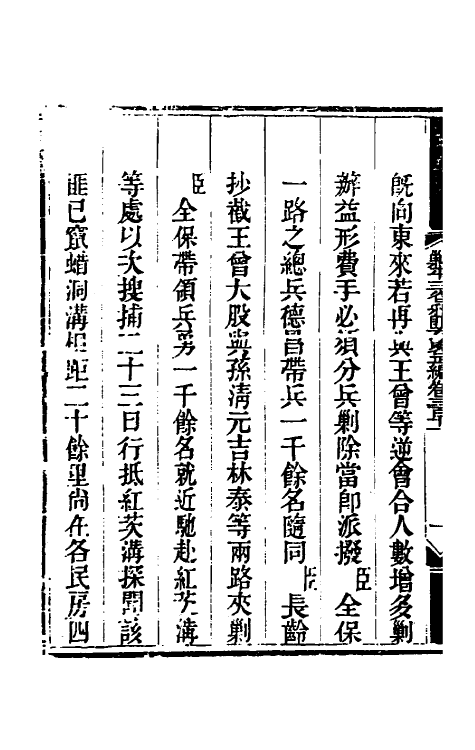 旣向東來若再與王曾等逆會合人數增多剿
辦益形費手必須分兵剿除當卽派撥臣全保
一路之總兵德昌帶兵一千餘名隨同臣長齡
抄截王曾大股與孫淸元吉林泰等兩路夾剿
臣全保帶領兵勇一千餘名就近馳赴紅茨溝
等處以次搜捕二十三日行抵紅茨溝探聞該
匪已竄蜡洞溝相距二十餘里尙在各民房四